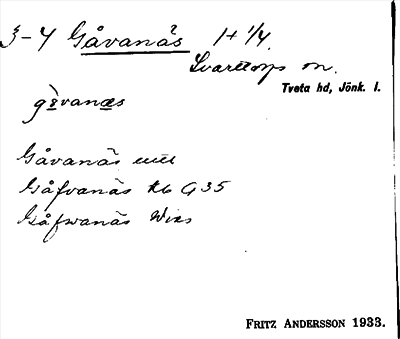 3-4 Gåvanäs 1+ 1/4
Svarttorps sn.
Tveta hd, Jönk. l.
gåvanæs
Gåvanäs uttl
Gåfvanäs Kb G35
Gåfwanäs Wies
FRITZ ANDERSSON 1933.